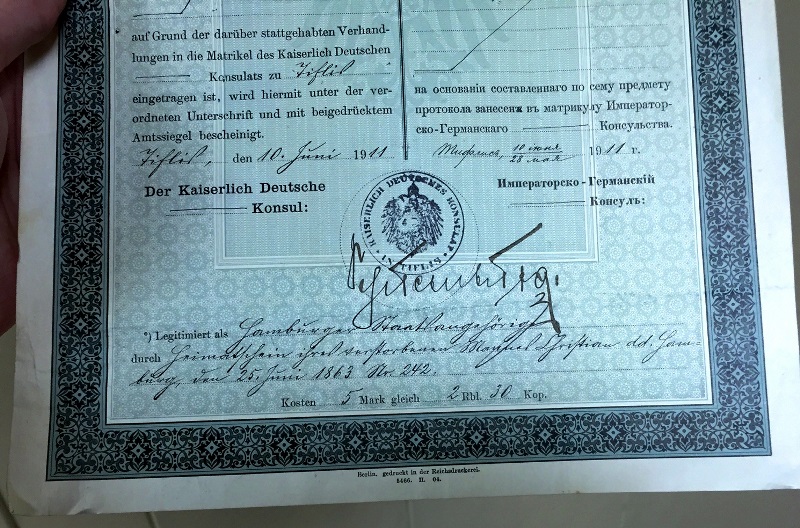 auf Grund der darüber stattgehabten Verhand-
lungen in die Matrikel des Kaiserlich Deutschen
Konsulats zu Tiflis
eingetragen ist, wird hiermit unter der ver-
ordneten Unterschrift und mit beigedrücktem
Amtssiegel bescheinigt.
Tiflis, den 10. Juni 1911
Der Kaiserlich Deutsche
Konsul:
на основаніи составленнаго по сему предмету
протокола занесенъ въ матрикулу Император-
ско-Германскаго Консульства.
Тифлисъ, 10 июня / 28 мая 1911 г.
Императорско-Германскій
Консулъ:
KAISERLICH DEUTSCHES KONSULAT
IN TIFLIS
*) Legitimiert als Hamburger Staatsangehörige
durch Heimatschein ihres verstorbenen Mannes Christian dd. Ham-
burg, den 25. Juni 1863 Nr. 242.
Kosten 5 Mark gleich 2 Rbl. 30 Kop.
Berlin, gedruckt in der Reichsdruckerei.
5466. II. 04.